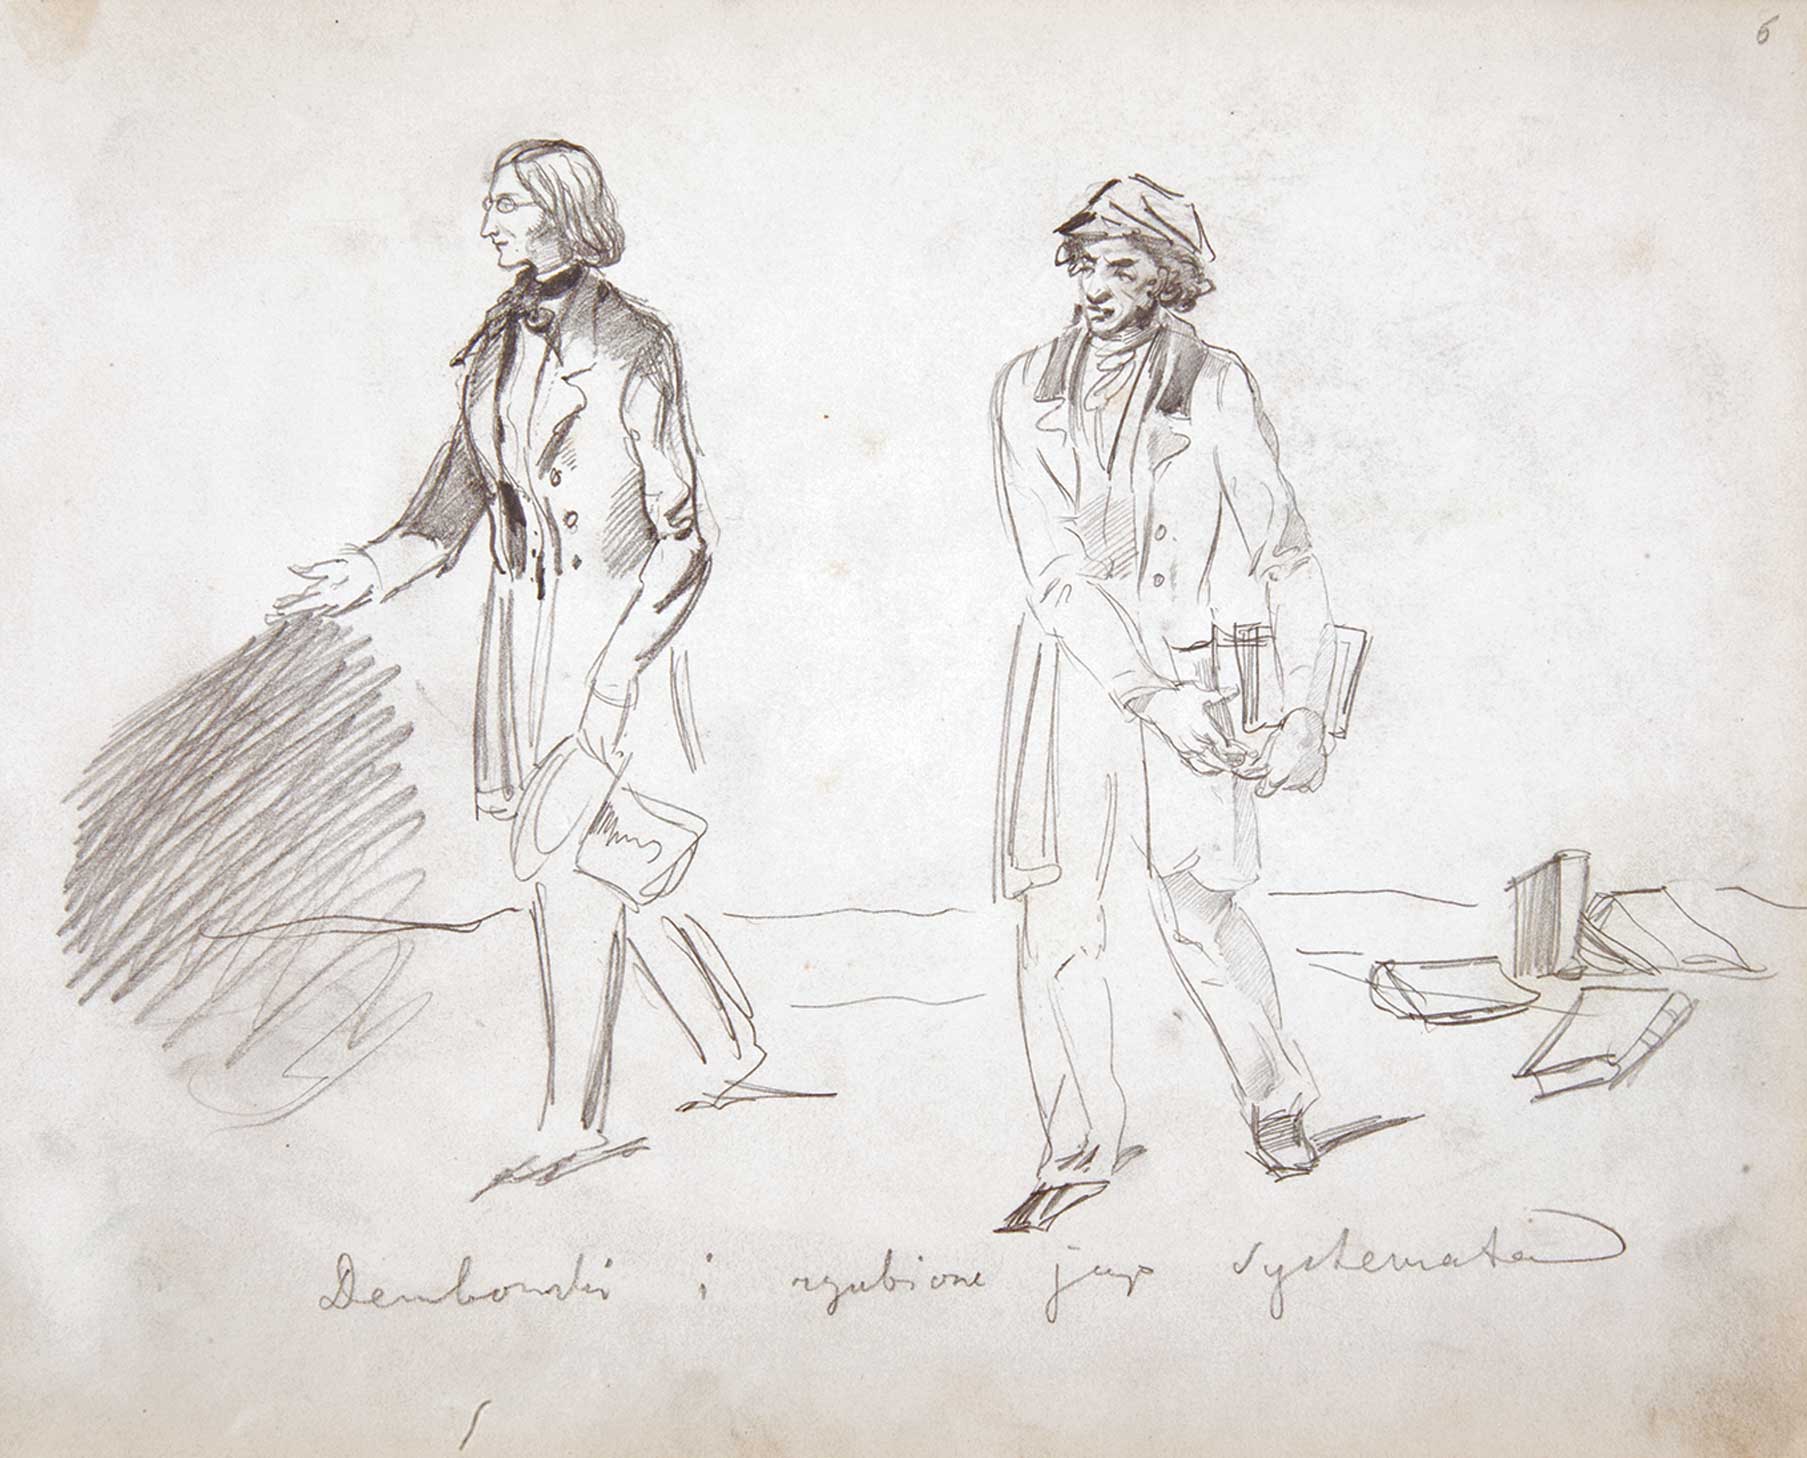 6
Dembowski i zgubione jego systemata